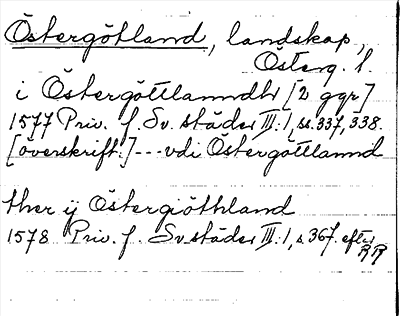 Östergötland, landskap,
Österg. l.
i Östergöttlanndh [2 ggr]
1577 Priv. f. Sv. städer III:1, ss. 337, 338.
[överskrift:] --- vdi Östergöttlannd
ther ij Östergiöthland
1578 Priv. f. Sv. städer III:1, s. 367. efter
RR